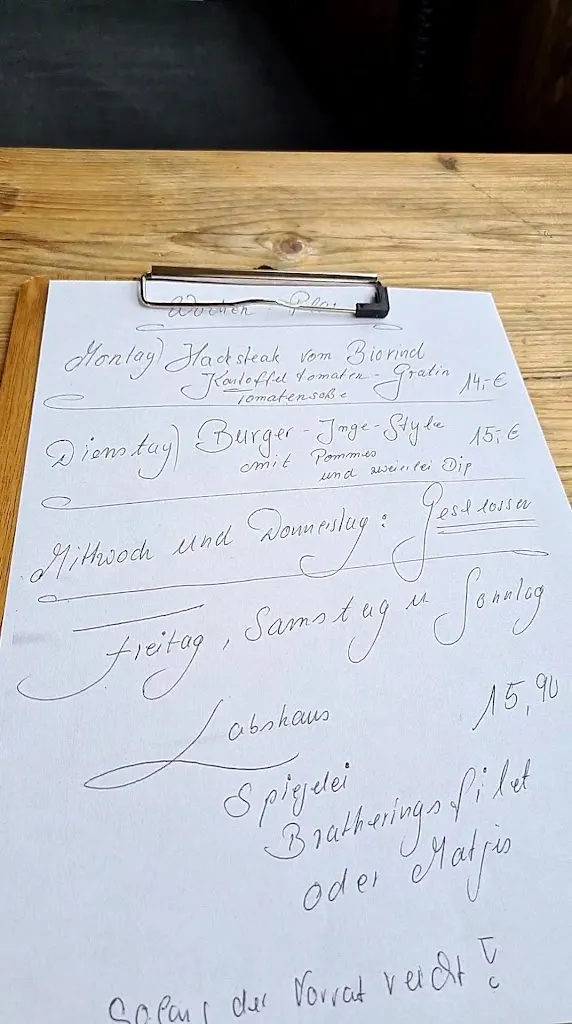 Wochen-Plan
Montag) Hacksteak vom Biorind
Kartoffel tomaten-Gratin 14,-€
Tomatensoße
Dienstag) Burger-Inge-Style 15,-€
mit Pommes
und zweierlei Dip
Mittwoch und Donnerstag: Geschlossen
Freitag, Samstag u Sonntag
Labshaus 15,90
Spiegelei
Bratheringsfilet
oder Matjis
Solang der Vorrat reicht!